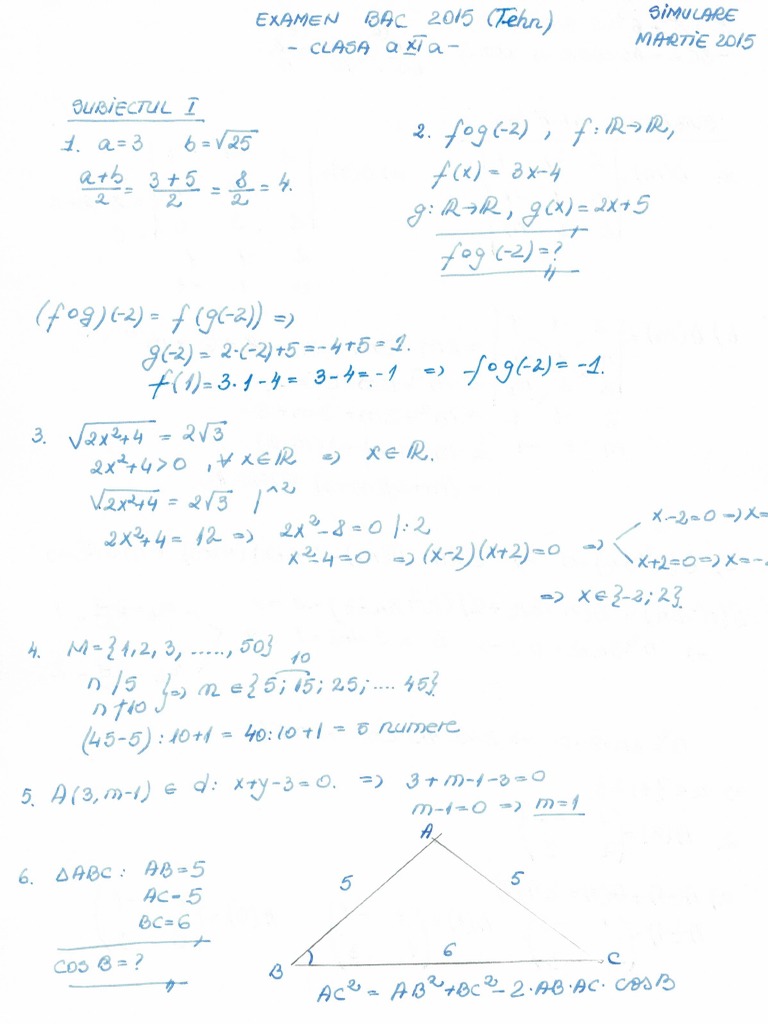 EXAMEN BAC 2015 (Tehn)
- CLASA a XI a -
SIMULARE
MARTIE 2015
SUBIECTUL I
1. a=3 b=√25
(a+b)/2 = (3+5)/2 = 8/2 = 4.
2. fog(-2), f: ℝ→ℝ,
f(x) = 3x-4
g: ℝ→ℝ, g(x) = 2x+5
fog(-2)=?
(fog)(-2) = f(g(-2)) =>
g(-2) = 2·(-2)+5 = -4+5 = 1.
f(1) = 3·1-4 = 3-4 = -1 => fog(-2) = -1.
3. √(2x²+4) = 2√3
2x²+4>0, ∀ x∈ℝ => x∈ℝ.
√(2x²+4) = 2√3 |^2
2x²+4 = 12 => 2x²-8=0 |:2
x²-4=0 => (x-2)(x+2)=0 =>
x-2=0 => x=
x+2=0 => x=-
=> x∈{-2;2}.
4. M={1,2,3,.....,50}
10
n /5
n ∤10 } => n ∈ {5; 15; 25; .... 45}
(45-5):10+1 = 40:10+1 = 5 numere
5. A(3, m-1) ∈ d: x+y-3=0. => 3+m-1-3=0
m-1=0 => m=1
6. ΔABC: AB=5
AC=5
BC=6
cos B=?
A
5
5
6
B
C
AC² = AB²+BC²-2·AB·AC·cosB